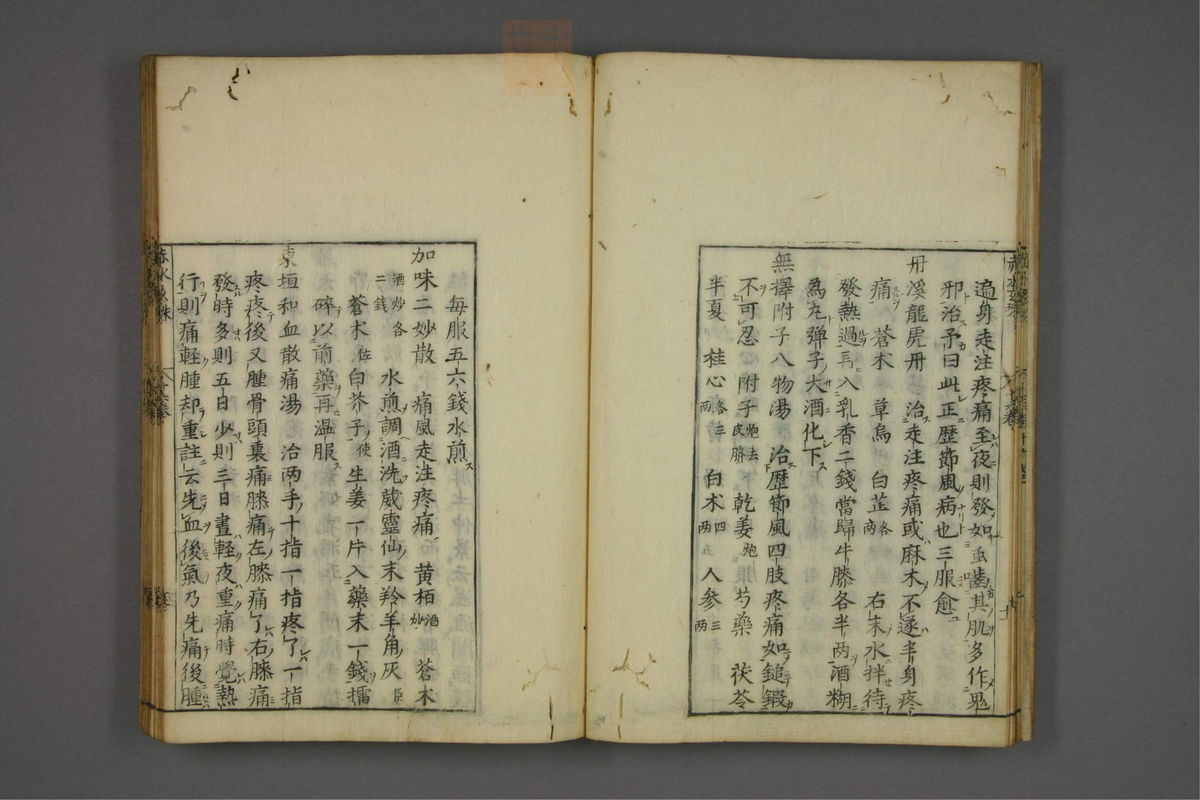 遍身走注疼痛至夜則發如虫齒其肌多作鬼
邪治予曰此正歷節風病也三服愈
丹溪龍虎丹 治走注疼痛或麻木不遂半身疼
痛 蒼木 草烏 白芷各両 右末水拌待
發熱過再入乳香二錢當歸牛膝各半両酒糊
為丸弾子大酒化下
無擇附子八物湯 治歷節風四肢疼痛如鎚鍛
不可忍 附子炮去皮臍 乾姜炮 芍藥 茯苓
半夏 桂心各三両 白朮四両 人参三両
每服五六錢水煎
加味二妙散 痛風走注疼痛 黄栢酒炒 蒼木
酒炒各二錢 水煎調酒洗葳靈仙末羚羊角灰臣
蒼木佐白芥子使生姜一片入藥末一錢擂
碎以前藥再温服
東垣和血散痛湯 治両手十指一指疼了一指
疼疼後又腫骨頭裏痛膝痛左膝痛了右膝痛
發時多則五日少則三日晝輕夜重痛時覺熱
行則痛輕腫却重註云先血後氣乃先痛後腫